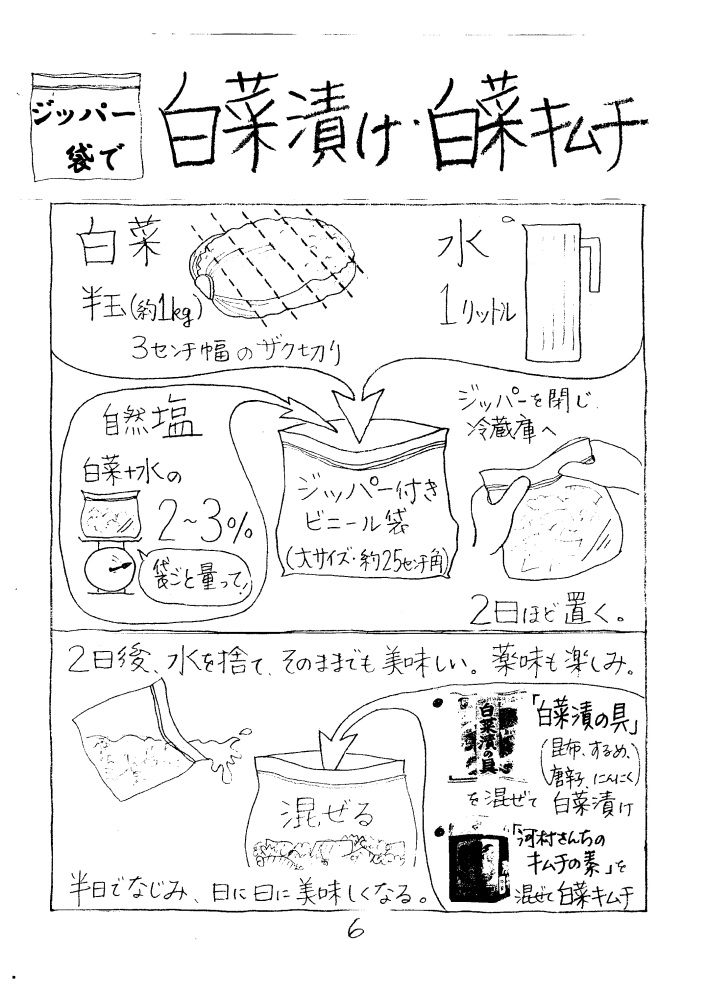 ジッパー
袋で
白菜漬け・白菜キムチ
白菜
半玉(約1kg)
3センチ幅のザク切り
水
1リットル
自然塩
白菜+水の
2〜3%
袋ごと量って!
ジッパー付き
ビニール袋
(大サイズ・約25センチ角)
ジッパーを閉じ
冷蔵庫へ
2日ほど置く。
2日後、水を捨て、そのままでも美味しい。薬味も楽しみ。
混ぜる
半日でなじみ、日に日に美味しくなる。
白菜漬の具
「白菜漬の具」
(昆布、するめ、
唐辛子、にんにく)
を混ぜて白菜漬け
「河村さんちの
キムチの素」を
混ぜて白菜キムチ
6